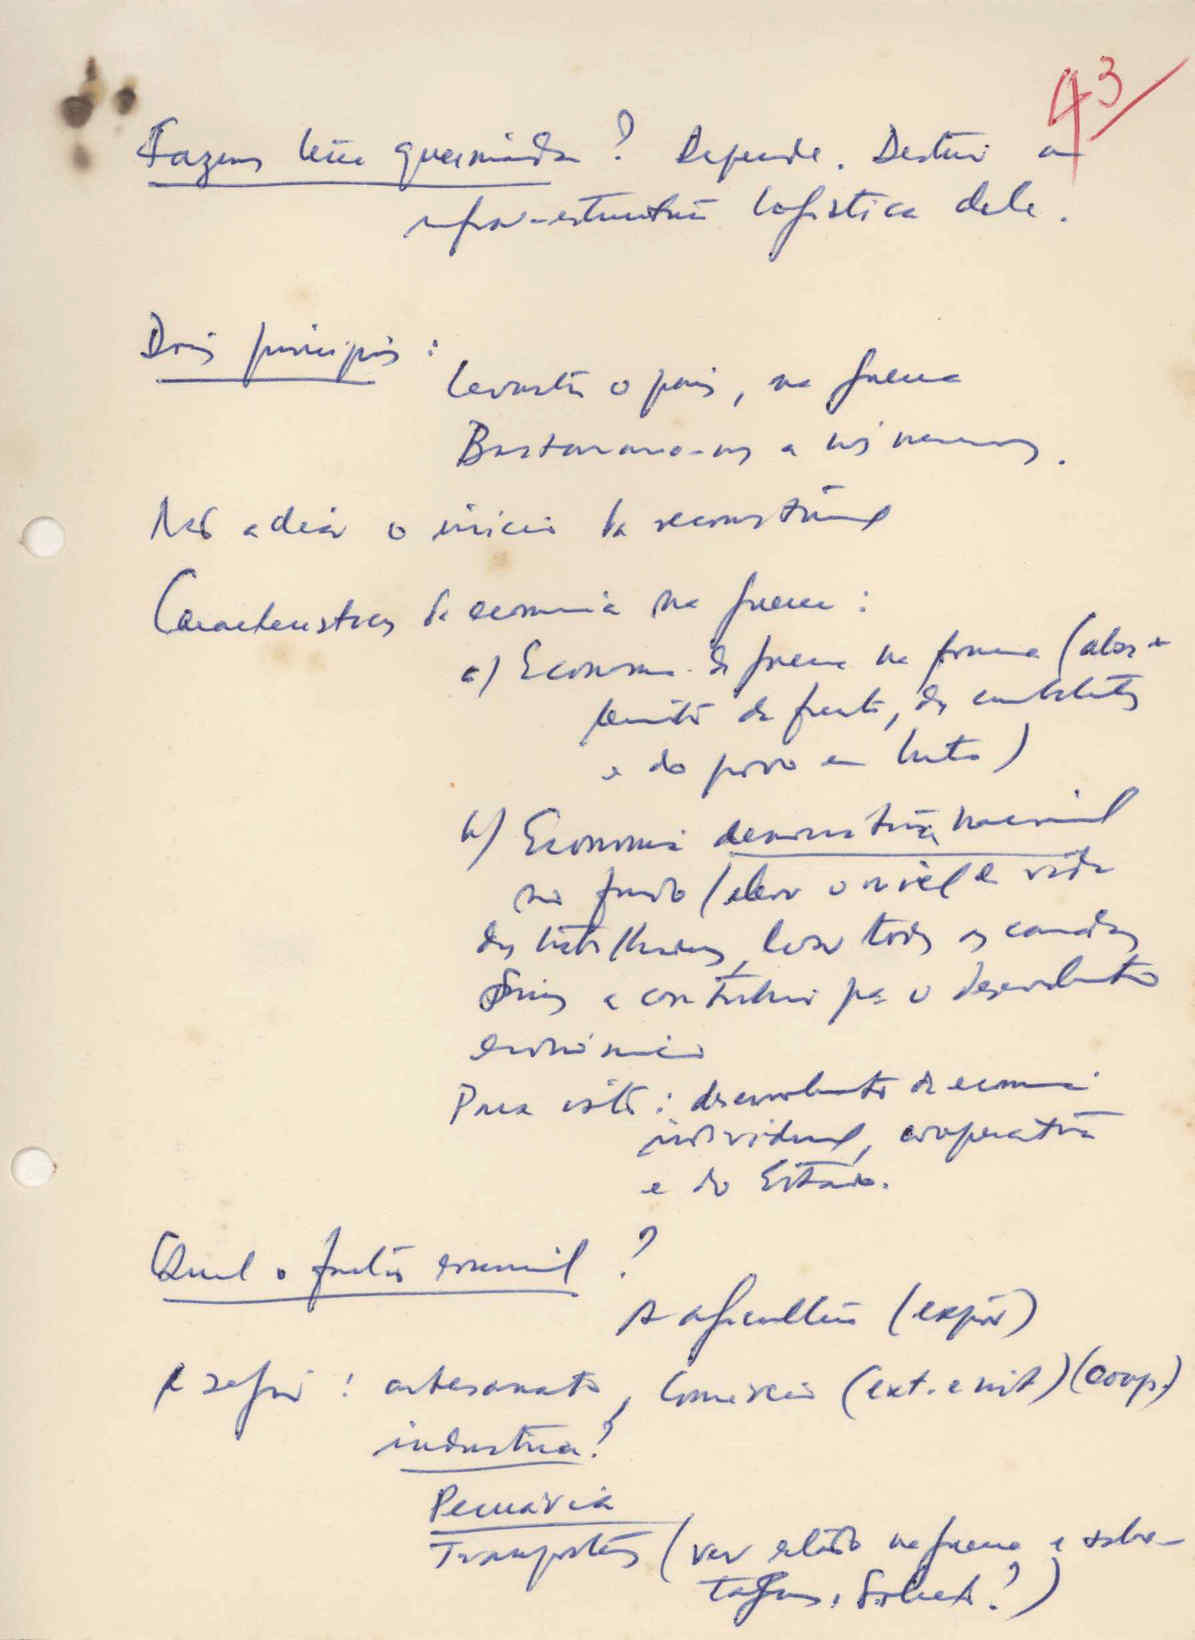 43
Fazemos terra queimada? Depende. Destruir a
infra-estrutura logística dele.
Dois princípios:
Levantar o país, na guerra
Bastarmo-nos a nós mesmos.
Não adiar o início da reconstrução
Características da economia na guerra:
a) Economia de guerra na forma (abas-
tecimento da frente, dos combatentes
e do povo em luta)
b) Economia democrática nacional
no fundo (elevar o nível de vida
dos trabalhadores, levar todas as camadas
sociais a contribuir pa o desenvolvimento
económico
Para isto: desenvolvimento da economia
individual, cooperativa
e do Estado.
Qual o factor essencial?
A agricultura (expor)
A seguir: artesanato, Comércio (ext. e int) (coop.)
industria?
Pecuária
Transportes (ver na guerra e
?)